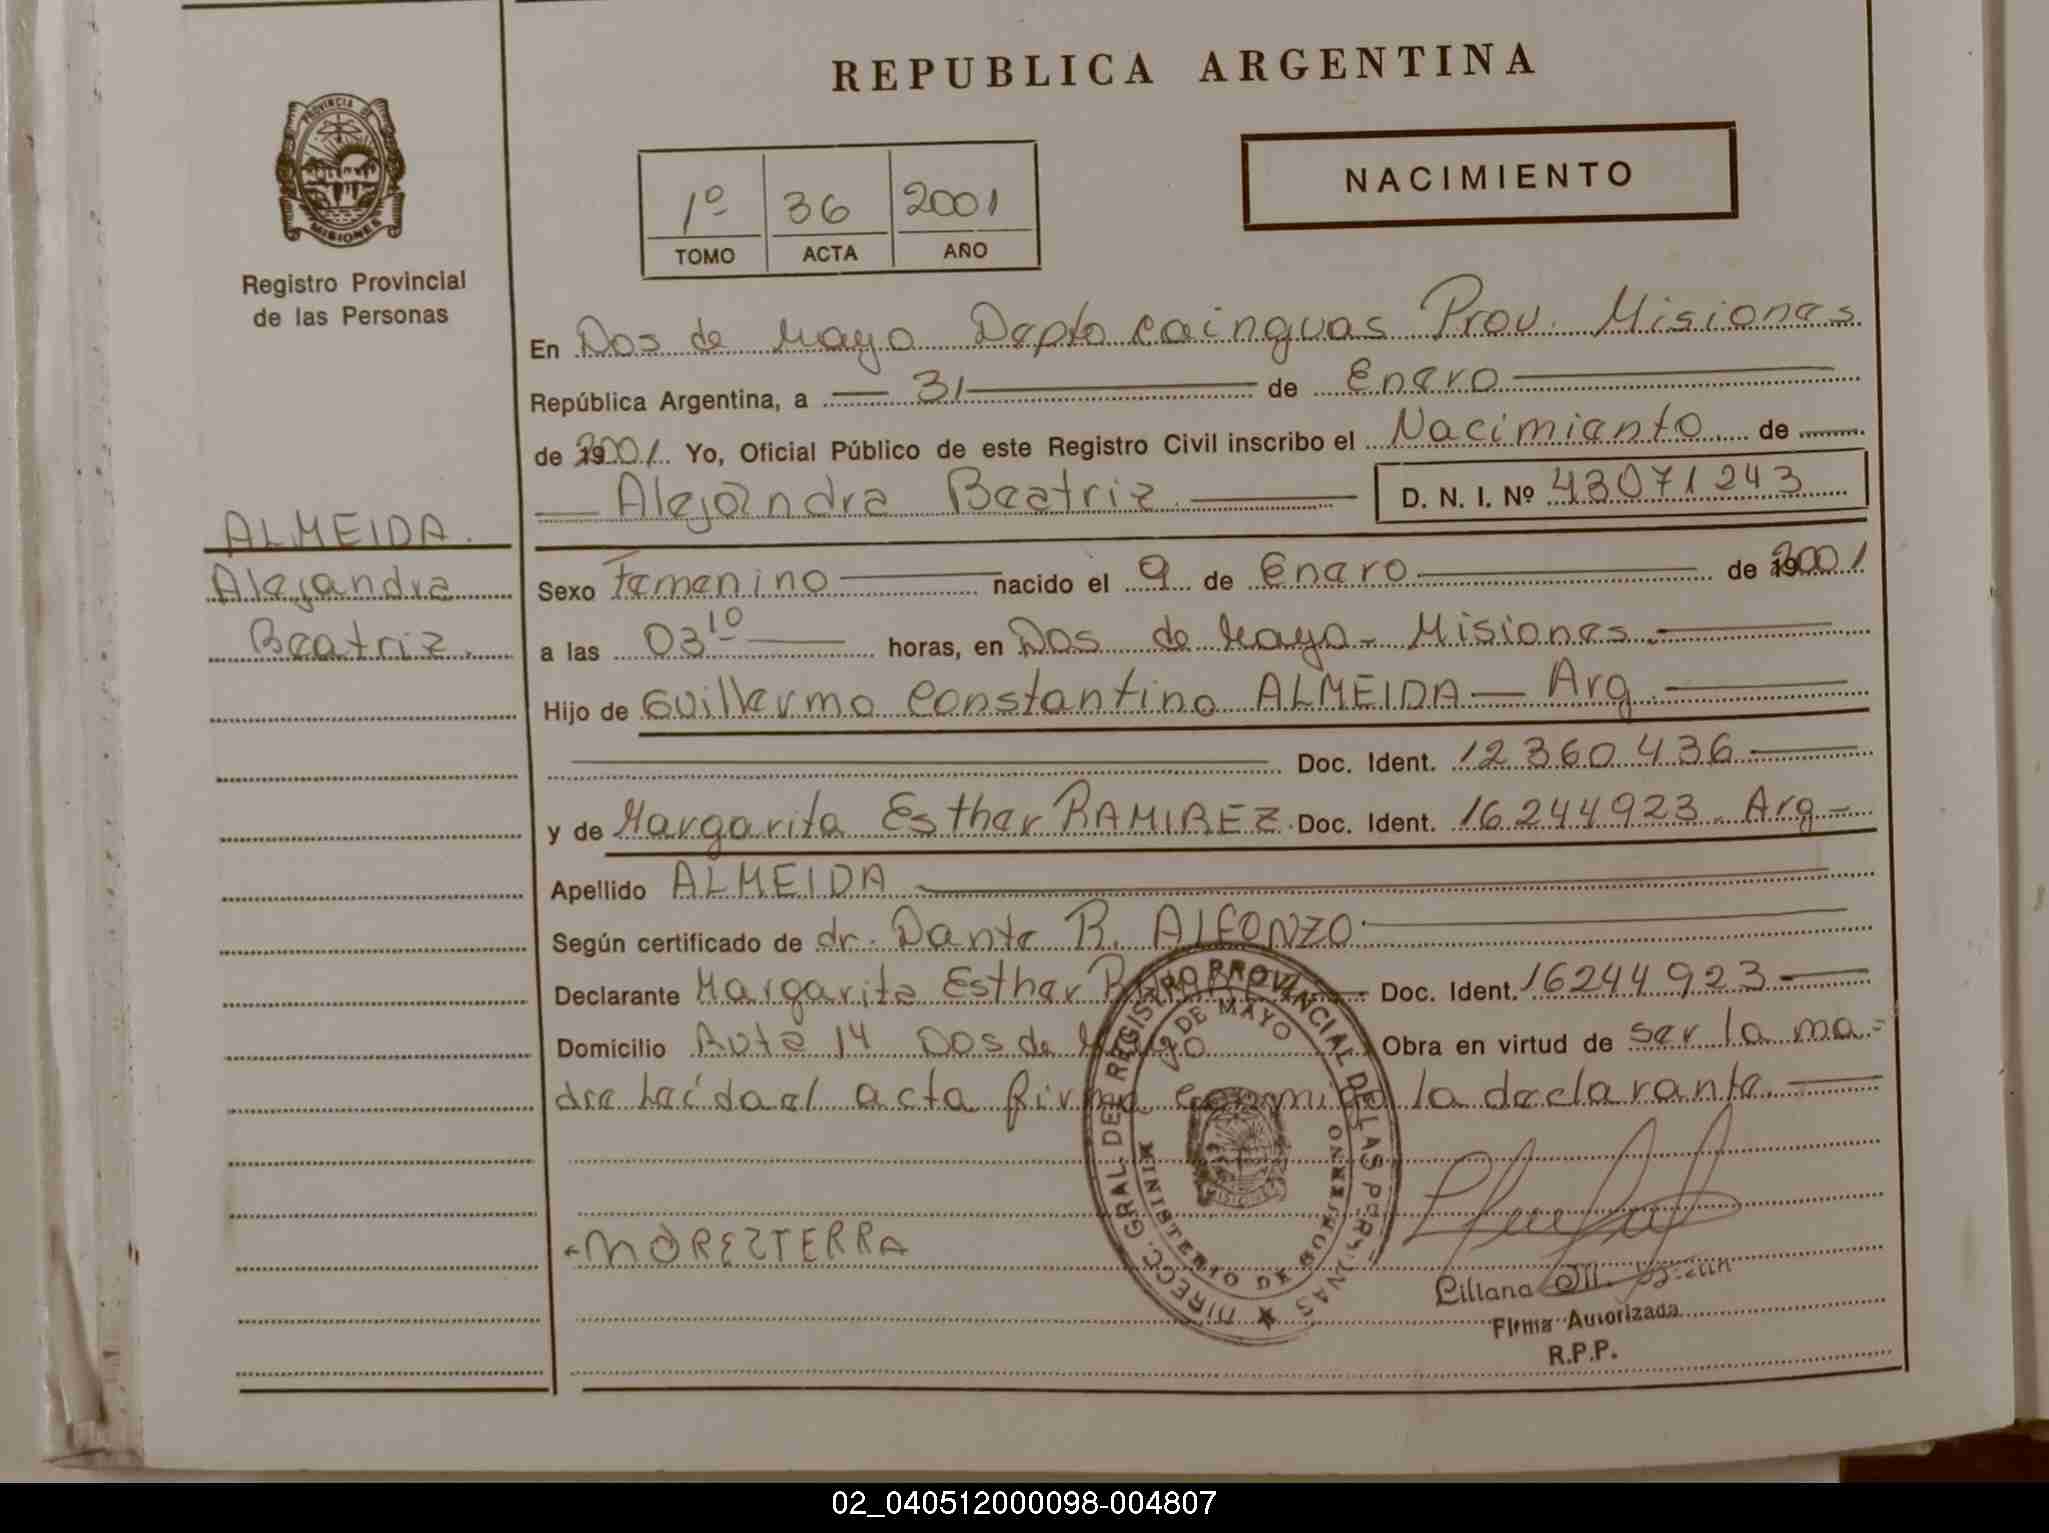 REPUBLICA ARGENTINA
PROVINCIA DE
MISIONES
Registro Provincial
de las Personas
1º 36 2001
TOMO ACTA AÑO
NACIMIENTO
En Dos de Mayo Depto Cainguas Prov. Misiones
República Argentina, a 31 de Enero
de 2001. Yo, Oficial Público de este Registro Civil inscribo el Nacimiento de
Alejandra Beatriz D. N. I. Nº 43071243
ALMEIDA.
Alejandra
Beatriz.
Sexo Femenino nacido el 9 de Enero de 2001
a las 03 10 horas, en Dos de Mayo - Misiones.
Hijo de Guillermo Constantino ALMEIDA — Arg.
Doc. Ident. 12360436
y de Margarita Esther RAMIREZ Doc. Ident. 16244923. Arg
Apellido ALMEIDA
Según certificado de dr. Dante R. ALFONZO
Declarante Margarita Esther Doc. Ident. 16244923
Domicilio Ruta 14 Dos de Mayo Obra en virtud de ser la ma-
dre Leída el acta firma conmigo la declarante.
DIRECC. GRAL. DEL REGISTRO PROVINCIAL DE LAS PERSONAS
2 DE MAYO
MINISTERIO DE GOBIERNO
Liliana
Firma Autorizada
R.P.P.
02_040512000098-004807